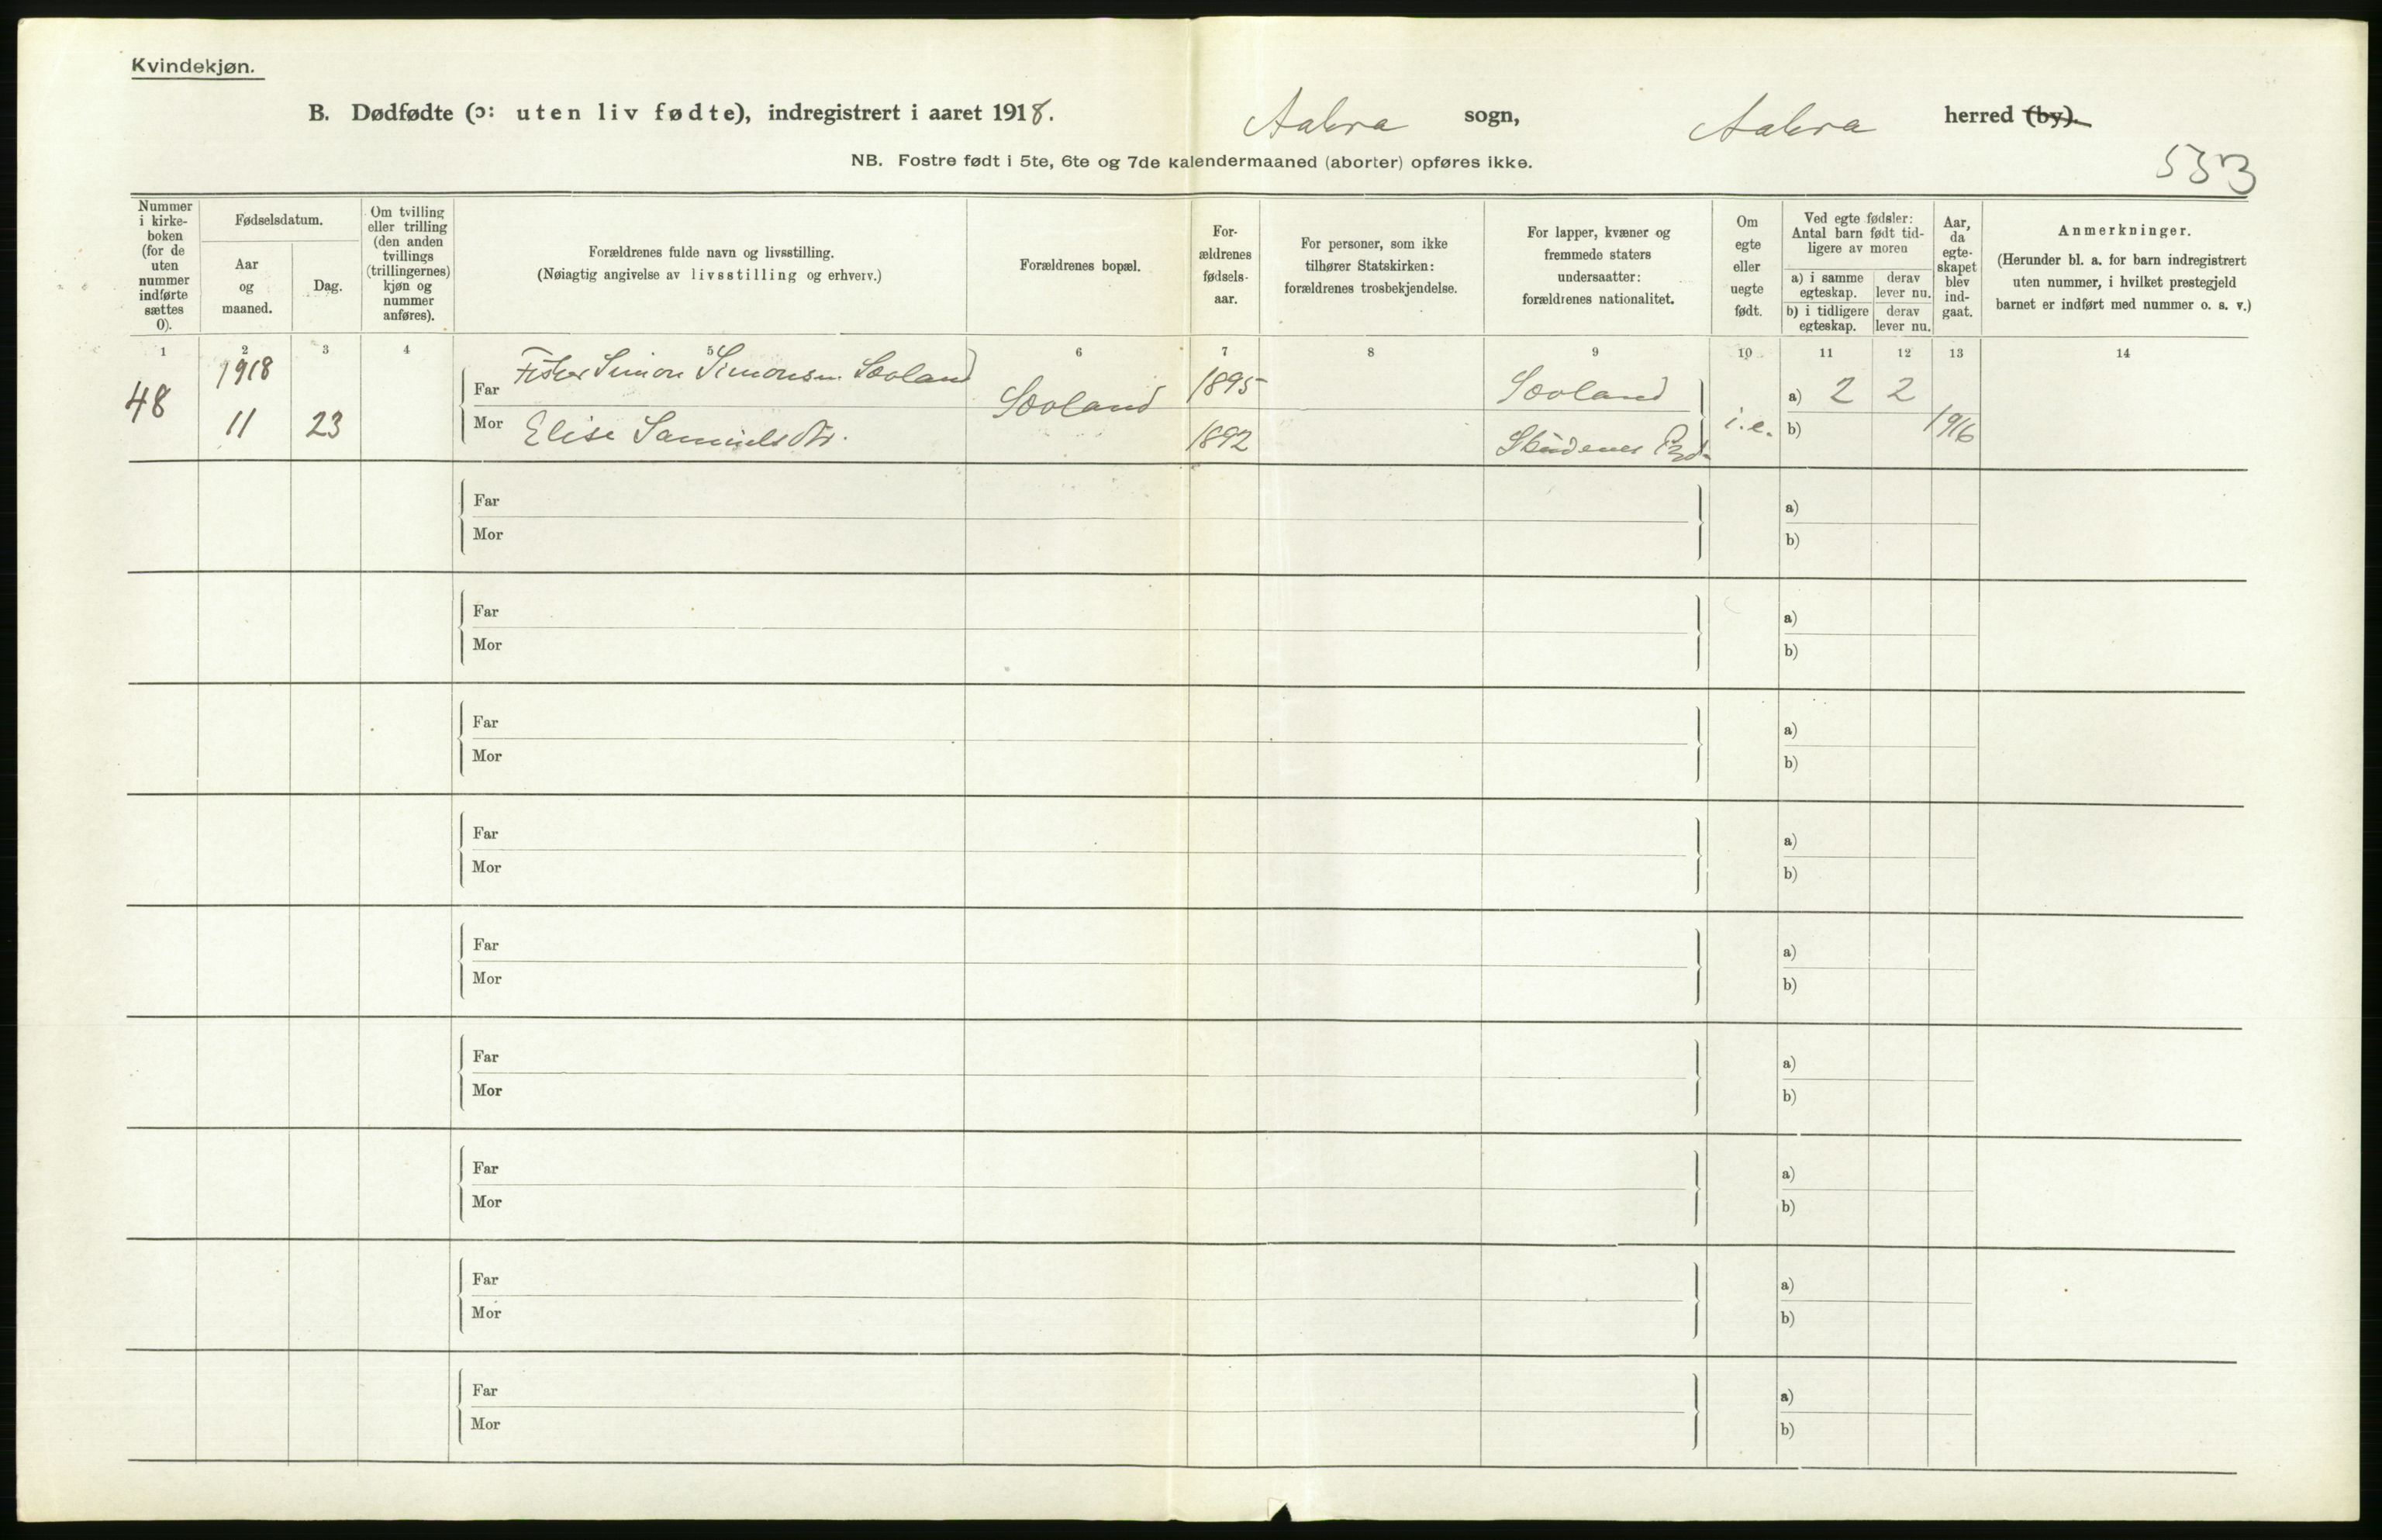 Kvindekjøn.
B. Dødfødte (ɔ: uten liv fødte), indregistrert i aaret 1918.
Aakra sogn, Aakra herred (by).
NB. Fostre født i 5te, 6te og 7de kalendermaaned (aborter) opføres ikke.
533
Nummer i kirke-boken (for de uten nummer indførte sættes 0).
Fødselsdatum.
Aar og maaned.
Dag.
Om tvilling eller trilling (den anden tvillings (trillingernes) kjøn og nummer anføres).
Forældrenes fulde navn og livsstilling.
(Nøiagtig angivelse av livsstilling og erhverv.)
Forældrenes bopæl.
For-ældrenes fødsels-aar.
For personer, som ikke tilhører Statskirken: forældrenes trosbekjendelse.
For lapper, kvæner og fremmede staters undersaatter: forældrenes nationalitet.
Om egte eller uegte født.
Ved egte fødsler: Antal barn født tid-ligere av moren
a) i samme egteskap.
derav lever nu.
b) i tidligere egteskap.
derav lever nu.
Aar, da egte-skapet blev ind-gaat.
Anmerkninger.
(Herunder bl. a. for barn indregistrert uten nummer, i hvilket prestegjeld barnet er indført med nummer o. s. v.)
1 2 3 4 5 6 7 8 9 10 11 12 13 14
48 1918 11 23
Far Fisker Simon Simonsen Sæoland Sæoland 1895 Sæoland a) 2 2
Mor Elise Samuelsdtr. 1892 Skudenes Pgd. i.e. b) 1916
Far a)
Mor b)
Far a)
Mor b)
Far a)
Mor b)
Far a)
Mor b)
Far a)
Mor b)
Far a)
Mor b)
Far a)
Mor b)
Far a)
Mor b)
Far a)
Mor b)